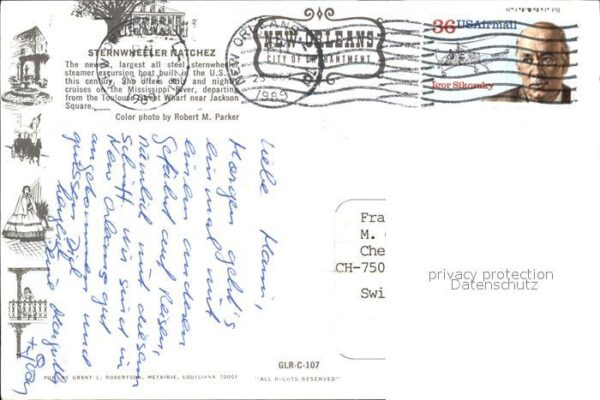 STERNWHEELER NATCHEZ
The newest, largest all steel sternwheel
steamer excursion boat built in the U.S. in
this century. She offers daily and nightly
cruises on the Mississippi River, departing
from the Toulouse Street Wharf near Jackson
Square.
Color photo by Robert M. Parker
NEW ORLEANS
CITY OF ENCHANTMENT
NEW ORLEANS
1989
36 USAirmail
Igor Sikorsky
Liebe Hanni,
Morgen geht's
einmal mit
einem anderen
Gefährt auf Reisen,
nämlich mit diesem
Schiff. Wir sind in
New Orleans gut
angekommen und
grüssen Dich
herzlich
Deine
Fra
M.
Che
CH-750
Swi
privacy protection
Datenschutz
GLR-C-107
PUB. BY GRANT L. ROBERTSON, METAIRIE, LOUISIANA 70001
"ALL RIGHTS RESERVED"